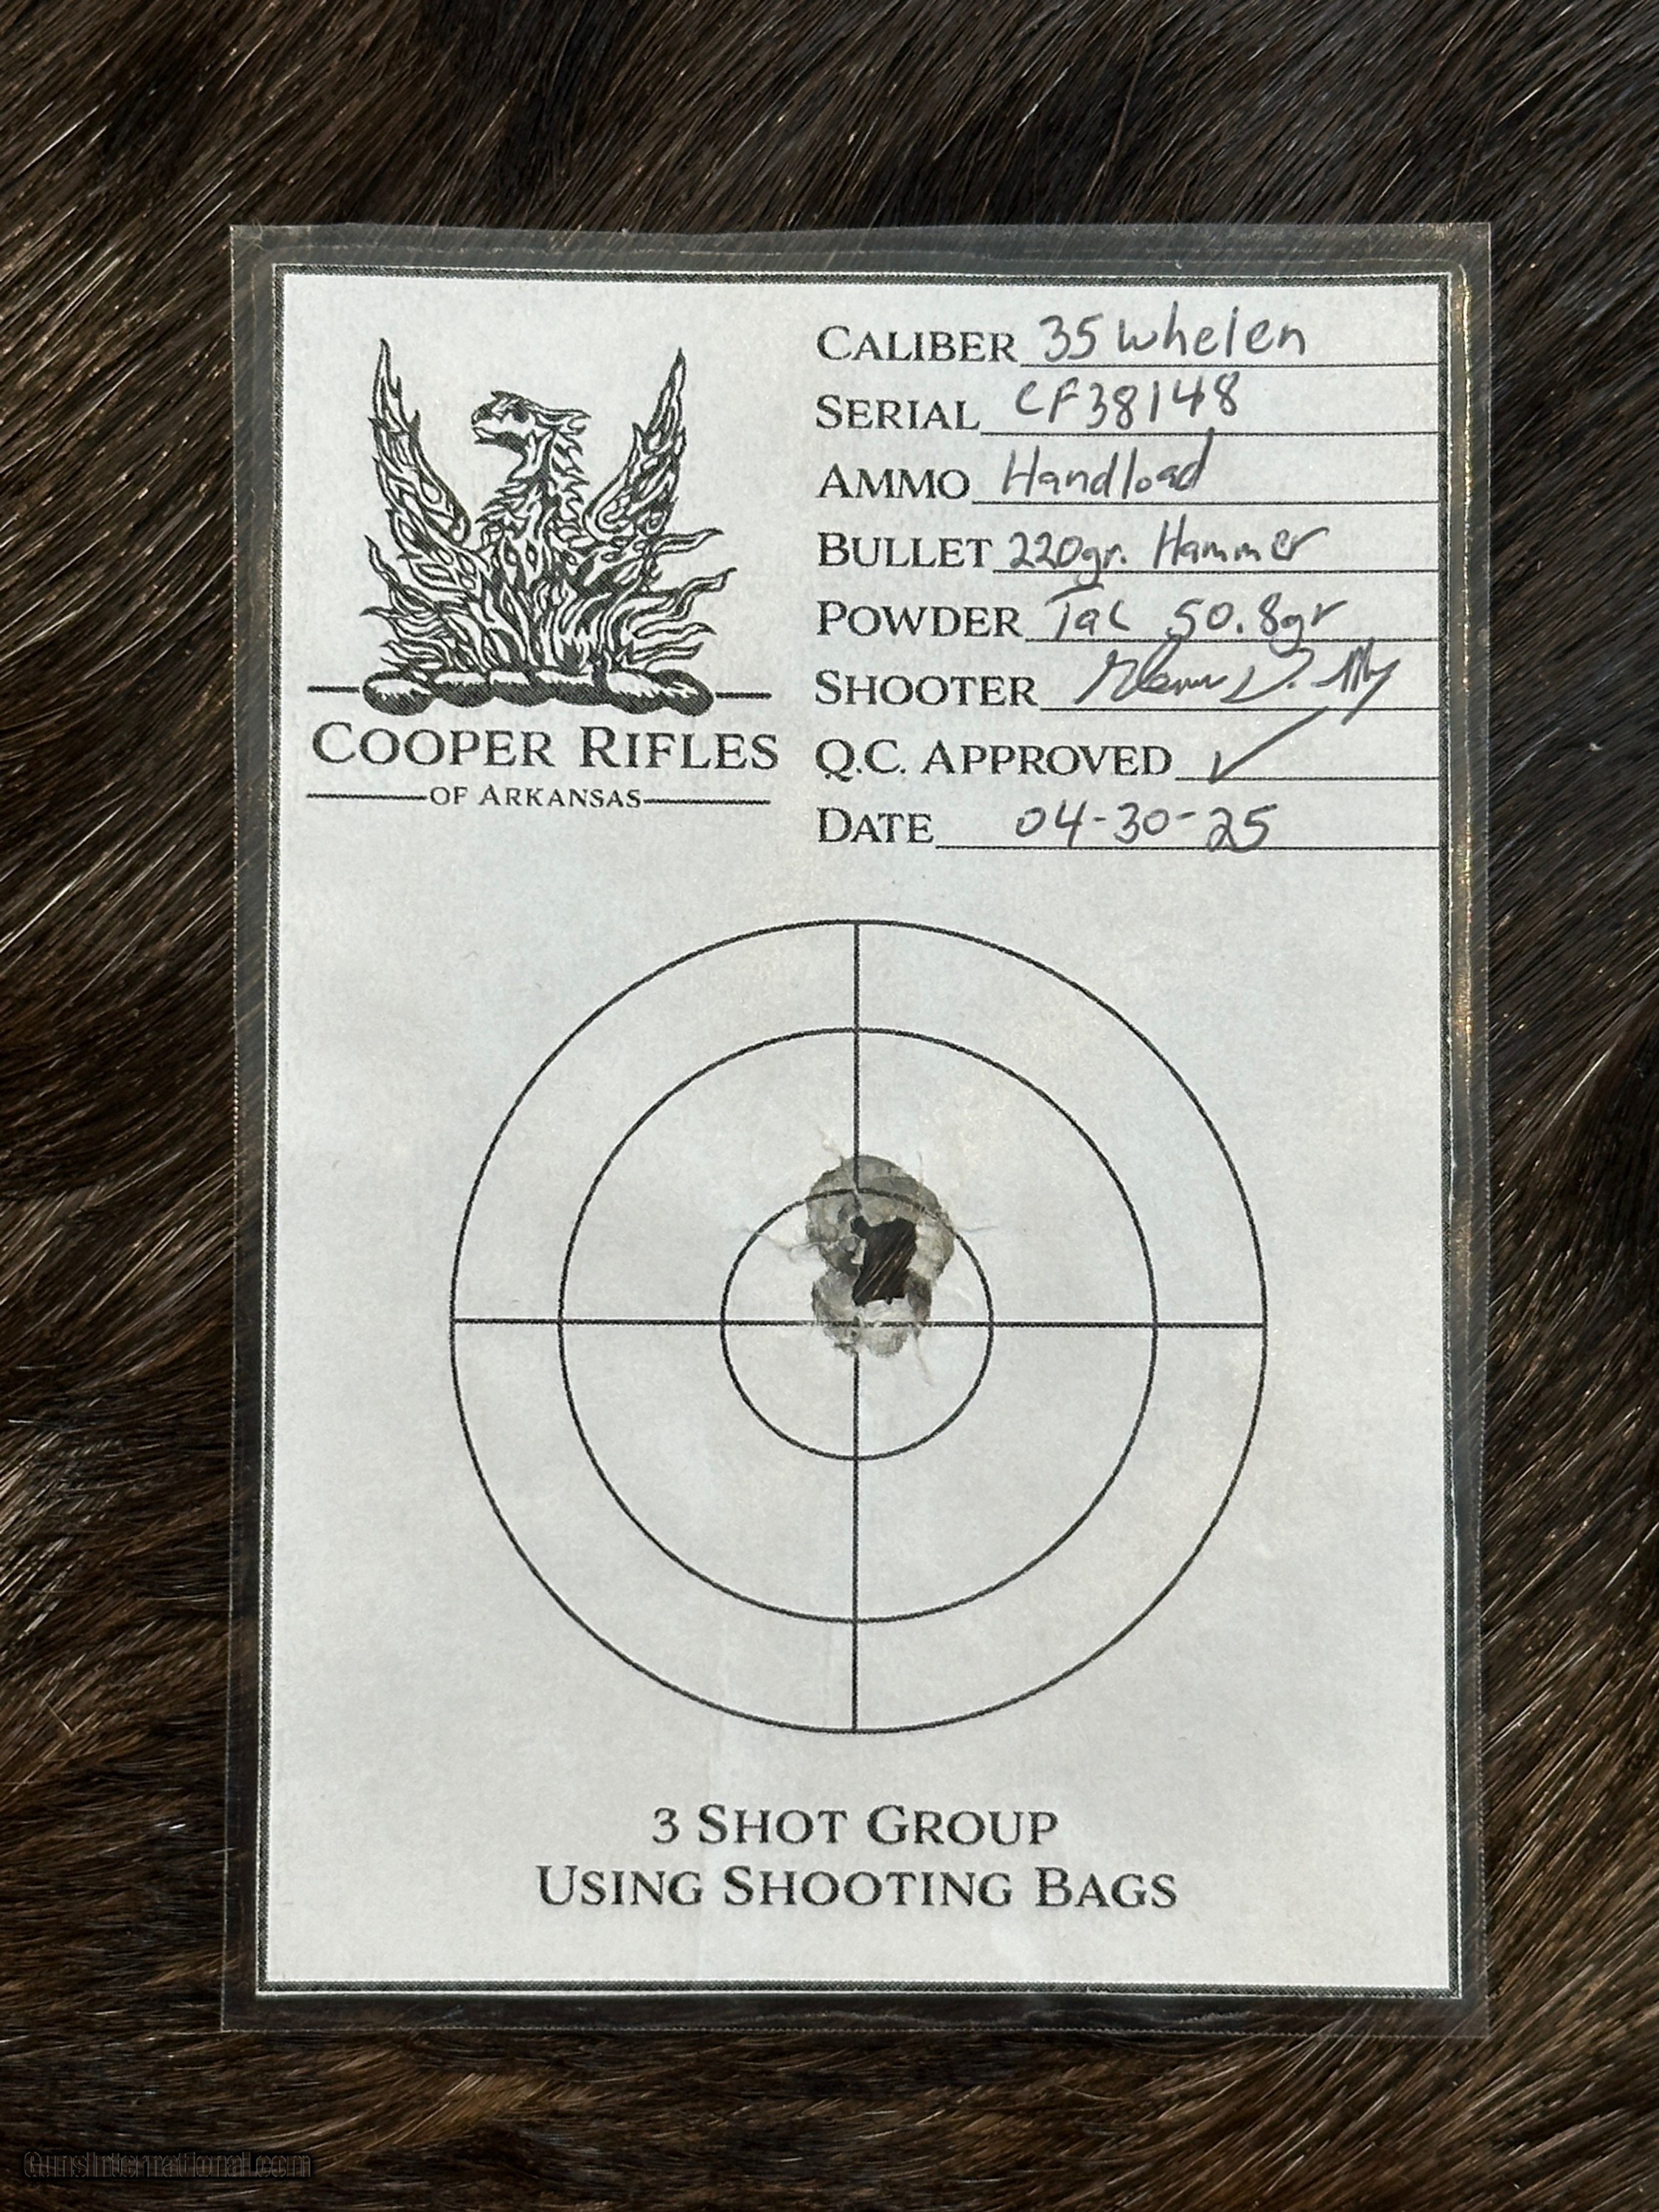 CALIBER 35 Whelen
SERIAL CF38148
AMMO Handload
BULLET 220gr. Hammer
POWDER Tac 50.8gr
SHOOTER
Q.C. APPROVED ✓
DATE 04-30-25
COOPER RIFLES
OF ARKANSAS
3 SHOT GROUP
USING SHOOTING BAGS
GunsInternational.com